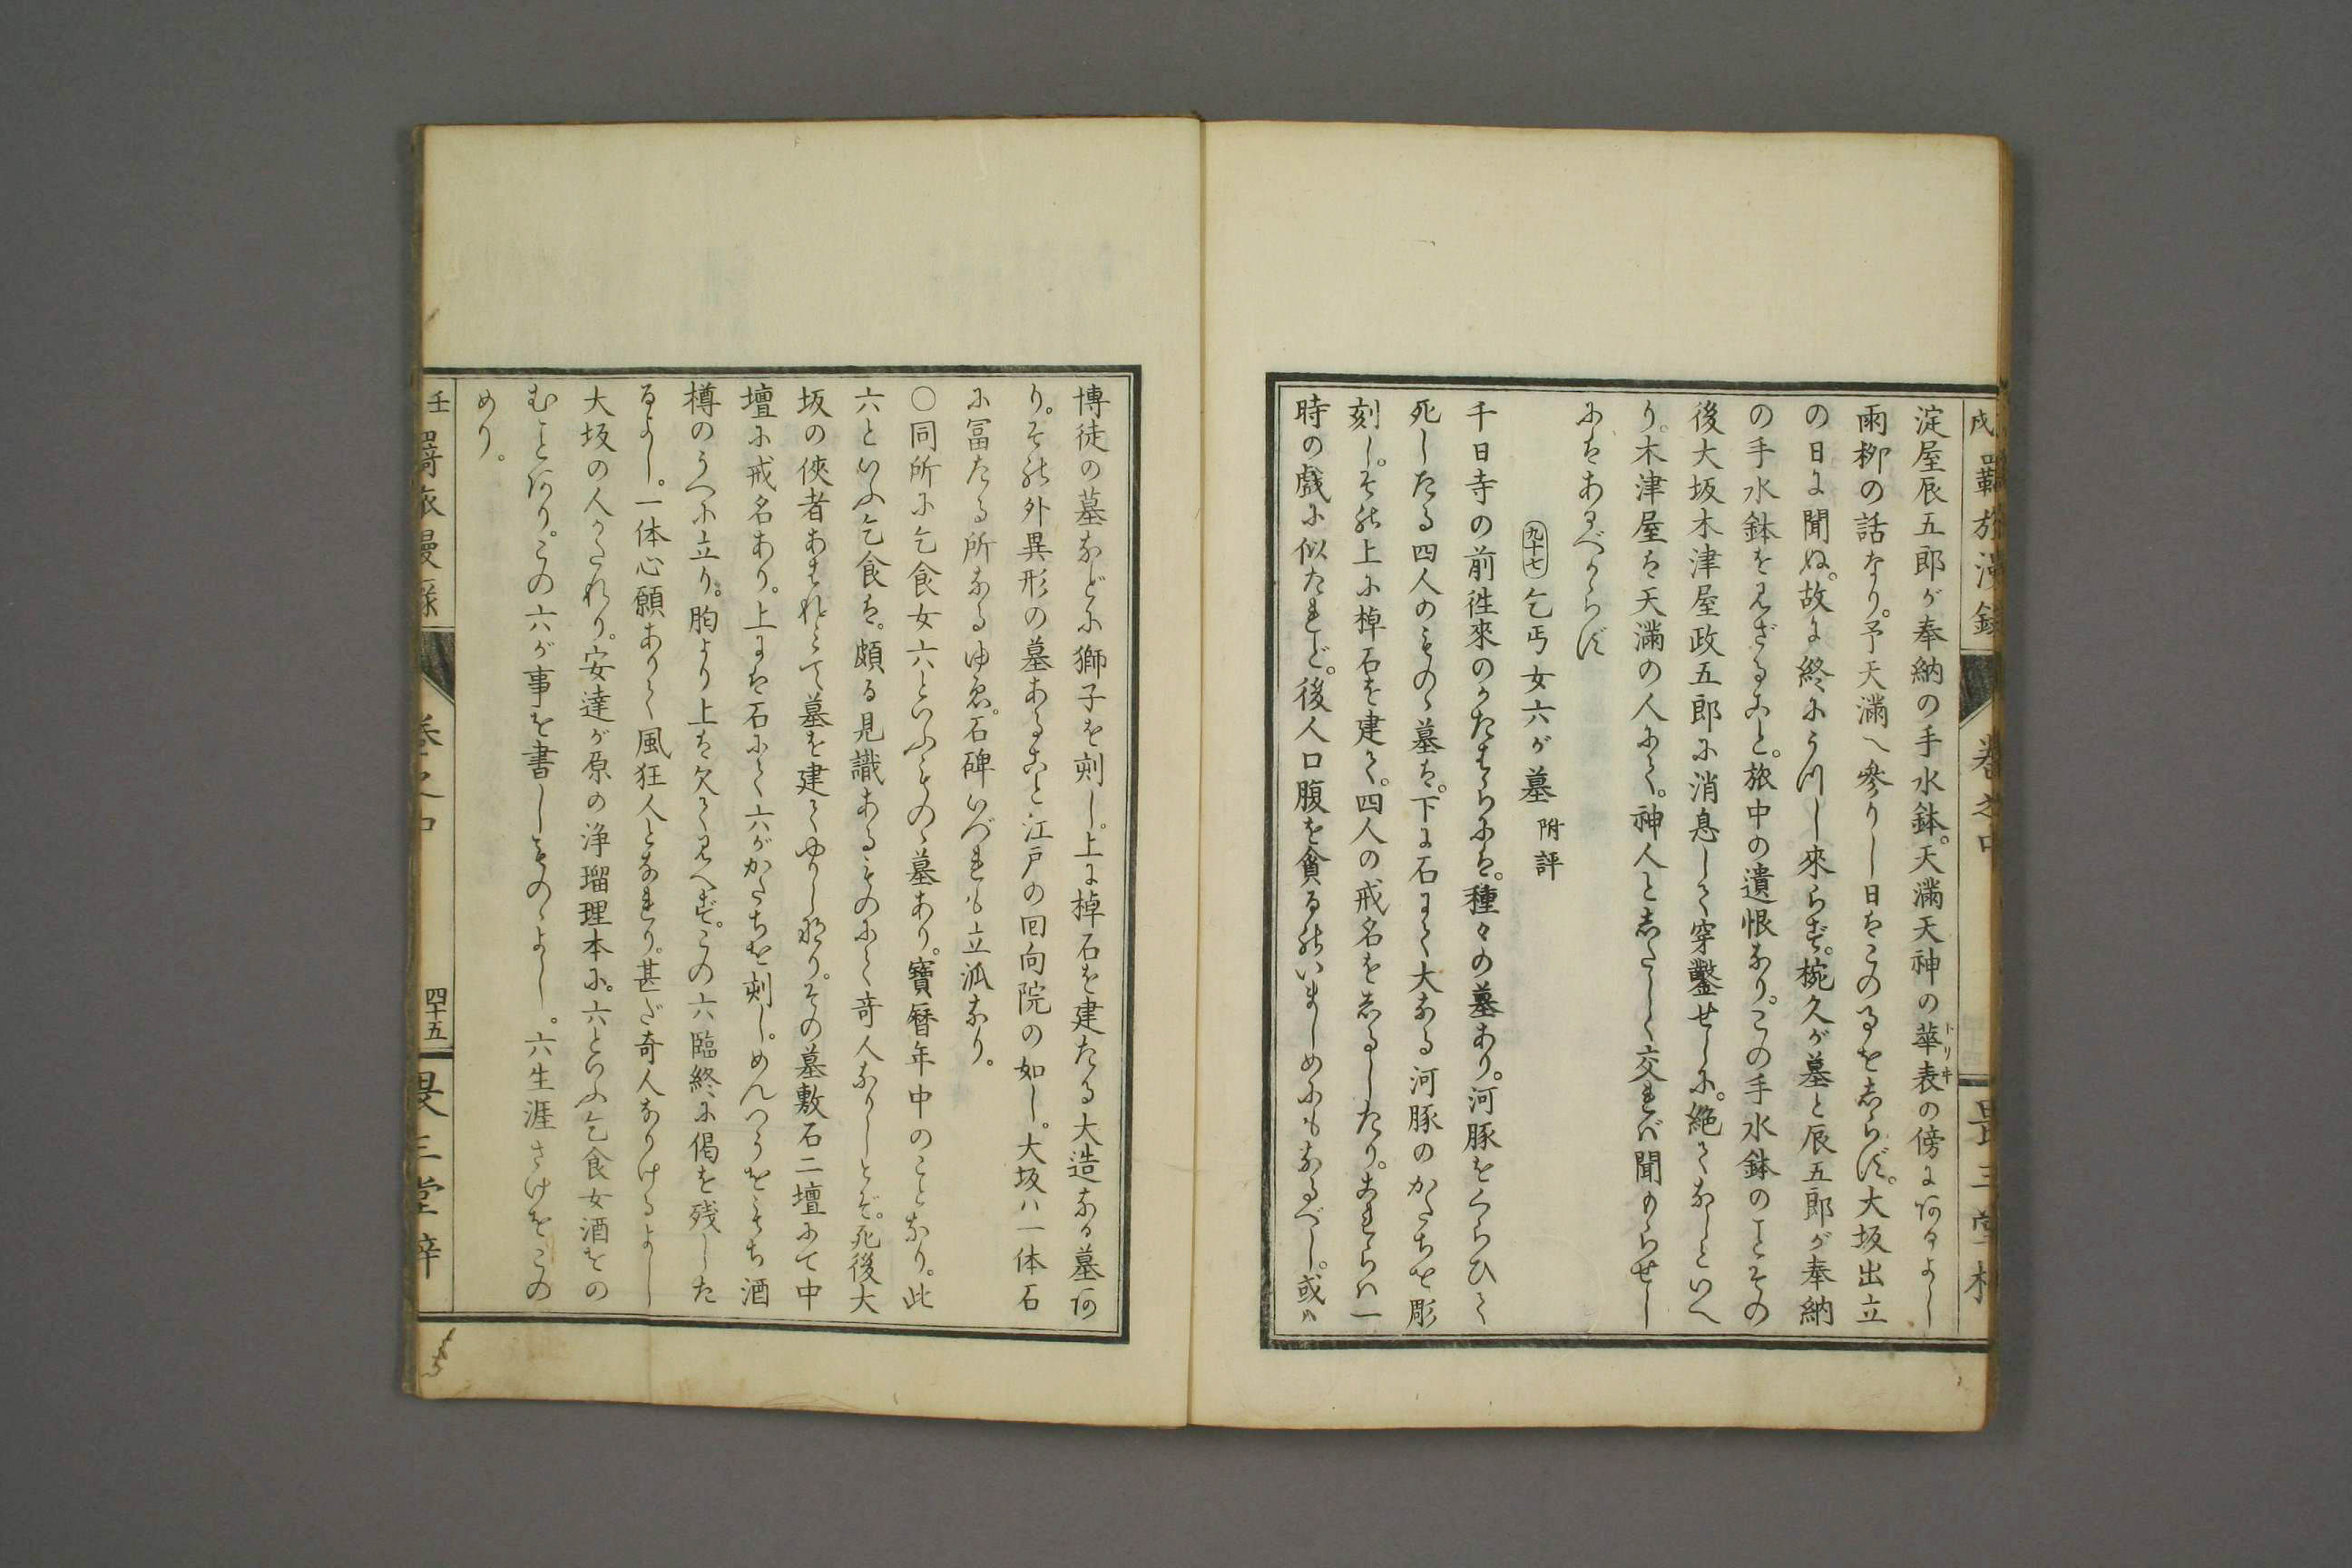 戌 羇旅漫録 卷之中
淀屋辰五郎が奉納の手水鉢。天満天神の華表の傍にあるよし
トリヰ
雨柳の話なり。予天満へ参りし日はこの事をしらず。大坂出立
の日に聞ぬ。故に終にうつし來らず。椀久が墓と辰五郎が奉納
の手水鉢を見ざること。旅中の遺恨なり。この手水鉢のことその
後大坂木津屋政五郎に消息して穿鑿せしに。絶てなしといへ
り。木津屋は天満の人にて。神人としたしく交れば聞もらせし
にはあるべからず
九十七 乞丐女六が墓 附評
千日寺の前徃來のかたはらには。種々の墓あり。河豚をくらひて
死したる四人のものゝ墓は。下に石にて大なる河豚のかたちを彫
刻し。その上に棹石を建て。四人の戒名をしるしたり。これらは一
時の戯に似たれど。後人口腹を貪るのいましめにもなるべし。或ハ
博徒の墓などに獅子を刻し。上に棹石を建たる大造なる墓あ
り。その外異形の墓あること江戸の回向院の如し。大坂ハ一体石
に冨たる所なるゆゑ。石碑いづれも立派なり。
〇同所に乞食女六といふものゝ墓あり。寳暦年中のことなり。此
六といふ乞食は。頗る見識あるものにて奇人なりしとぞ。死後大
坂の俠者あはれとて墓を建てやりしなり。その墓敷石二壇にて中
壇に戒名あり。上には石にて六がかたちを刻し。めんつうをもち酒
樽のうへに立り。胸より上は欠て見へず。この六臨終に偈を残した
るよし。一体心願ありて風狂人となれり。甚だ奇人なりけるよし
大坂の人かたれり。安達が原の浄瑠理本に。六といふ乞食女酒をの
むことあり。この六が事を書しものゝよし。六生涯さけをこの
めり。
壬 羇旅漫録 卷之中 四十五